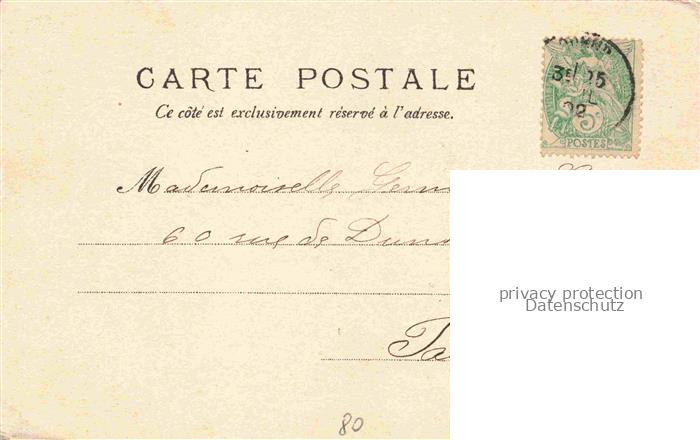 CARTE POSTALE
Ce côté est exclusivement réservé à l'adresse.
5c
POSTES
Mademoiselle
60 rue de
privacy protection
Datenschutz
80